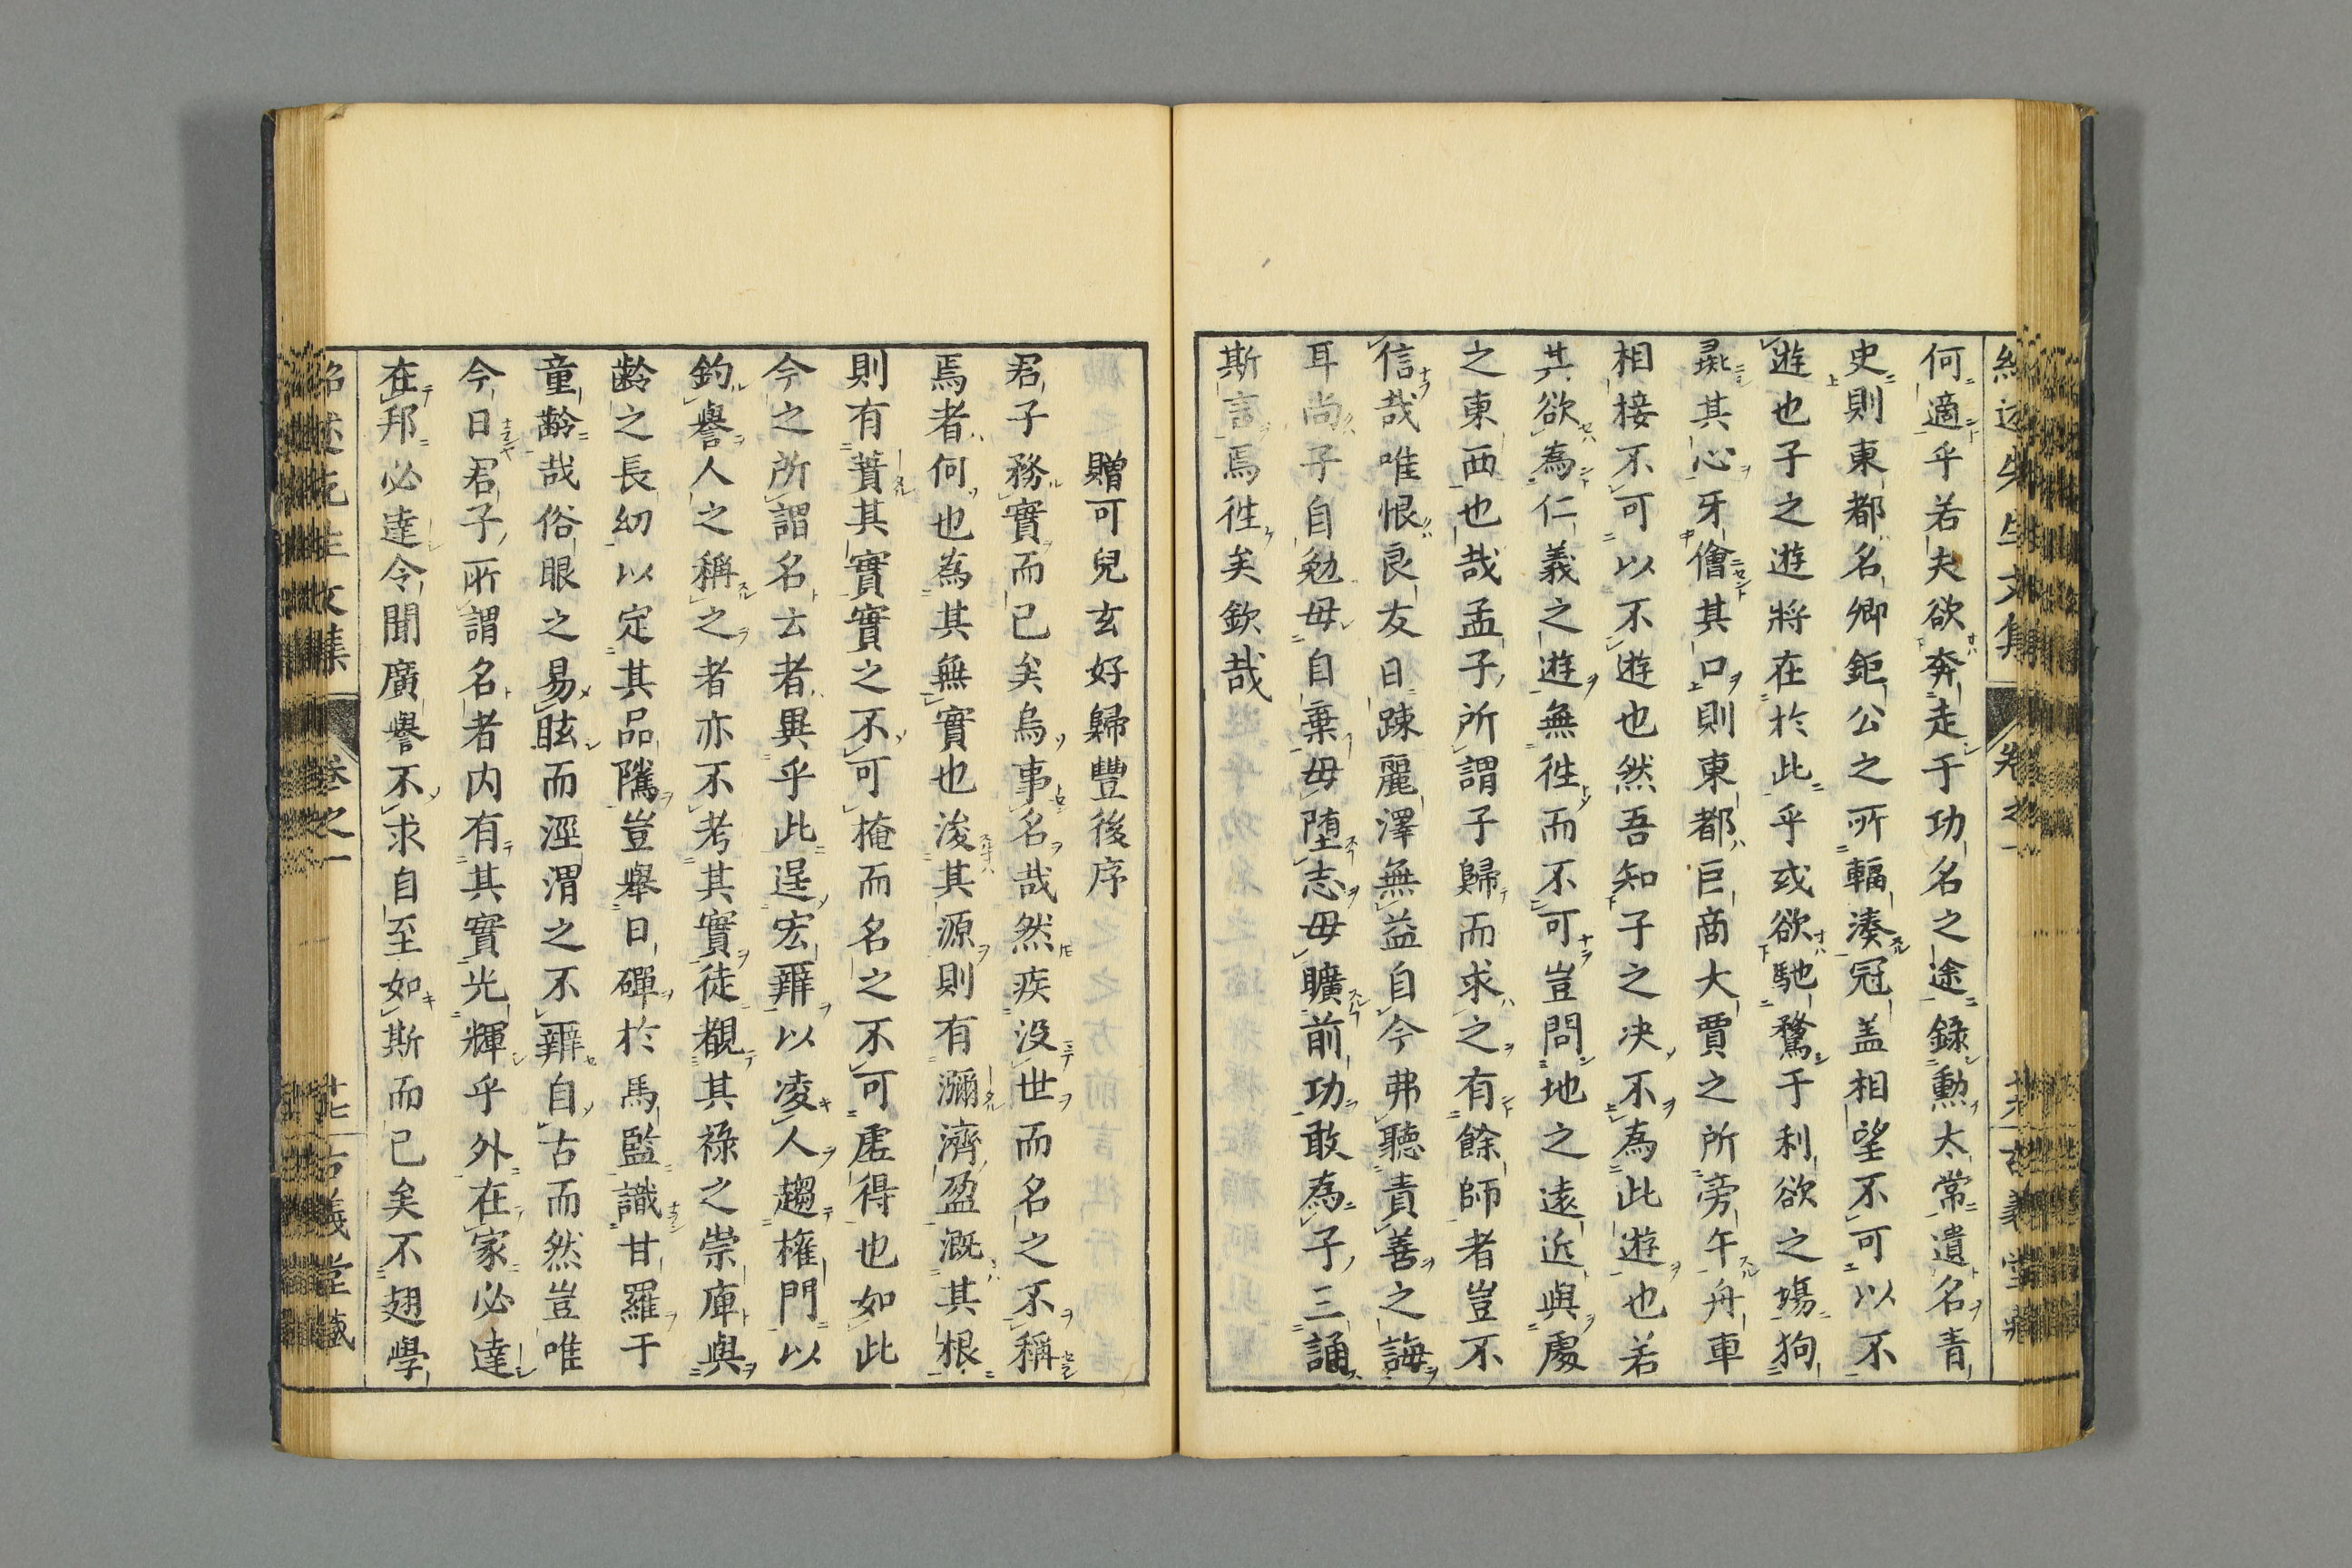 何適乎若夫欲奔走于功名之途錄勲太常遺名青
史則東都名卿鉅公之所輻湊冠盖相望不可以不
遊也子之遊將在於此乎或欲馳騖于利欲之塲狗
彘其心牙儈其口則東都巨商大賈之所旁午舟車
相接不可以不遊也然吾知子之决不為此遊也若
其欲為仁義之遊無徃而不可豈問地之遠近與處
之東西也哉孟子所謂子歸而求之有餘師者豈不
信哉唯恨良友日踈麗澤無益自今弗聽責善之誨
耳尚子自勉毋自棄毋堕志毋曠前功敢為子三誦
斯言焉徃矣欽哉
贈可兒玄好歸豐後序
君子務實而已矣烏事名哉然疾没世而名之不稱
焉者何也為其無實也浚其源則有瀰濟盈溉其根
則有蕡其實實之不可掩而名之不可虚得也如此
今之所謂名云者異乎此逞宏辯以凌人趨權門以
釣譽人之稱之者亦不考其實徒覩其祿之崇庳與
齢之長幼以定其品隲豈舉日磾於馬監識甘羅于
童齡哉俗眼之易眩而涇渭之不辯自古而然豈唯
今日君子所謂名者内有其實光輝乎外在家必達
在邦必達令聞廣譽不求自至如斯而已矣不翅學
紹述先生文集 卷之一 廿七 古義堂藏